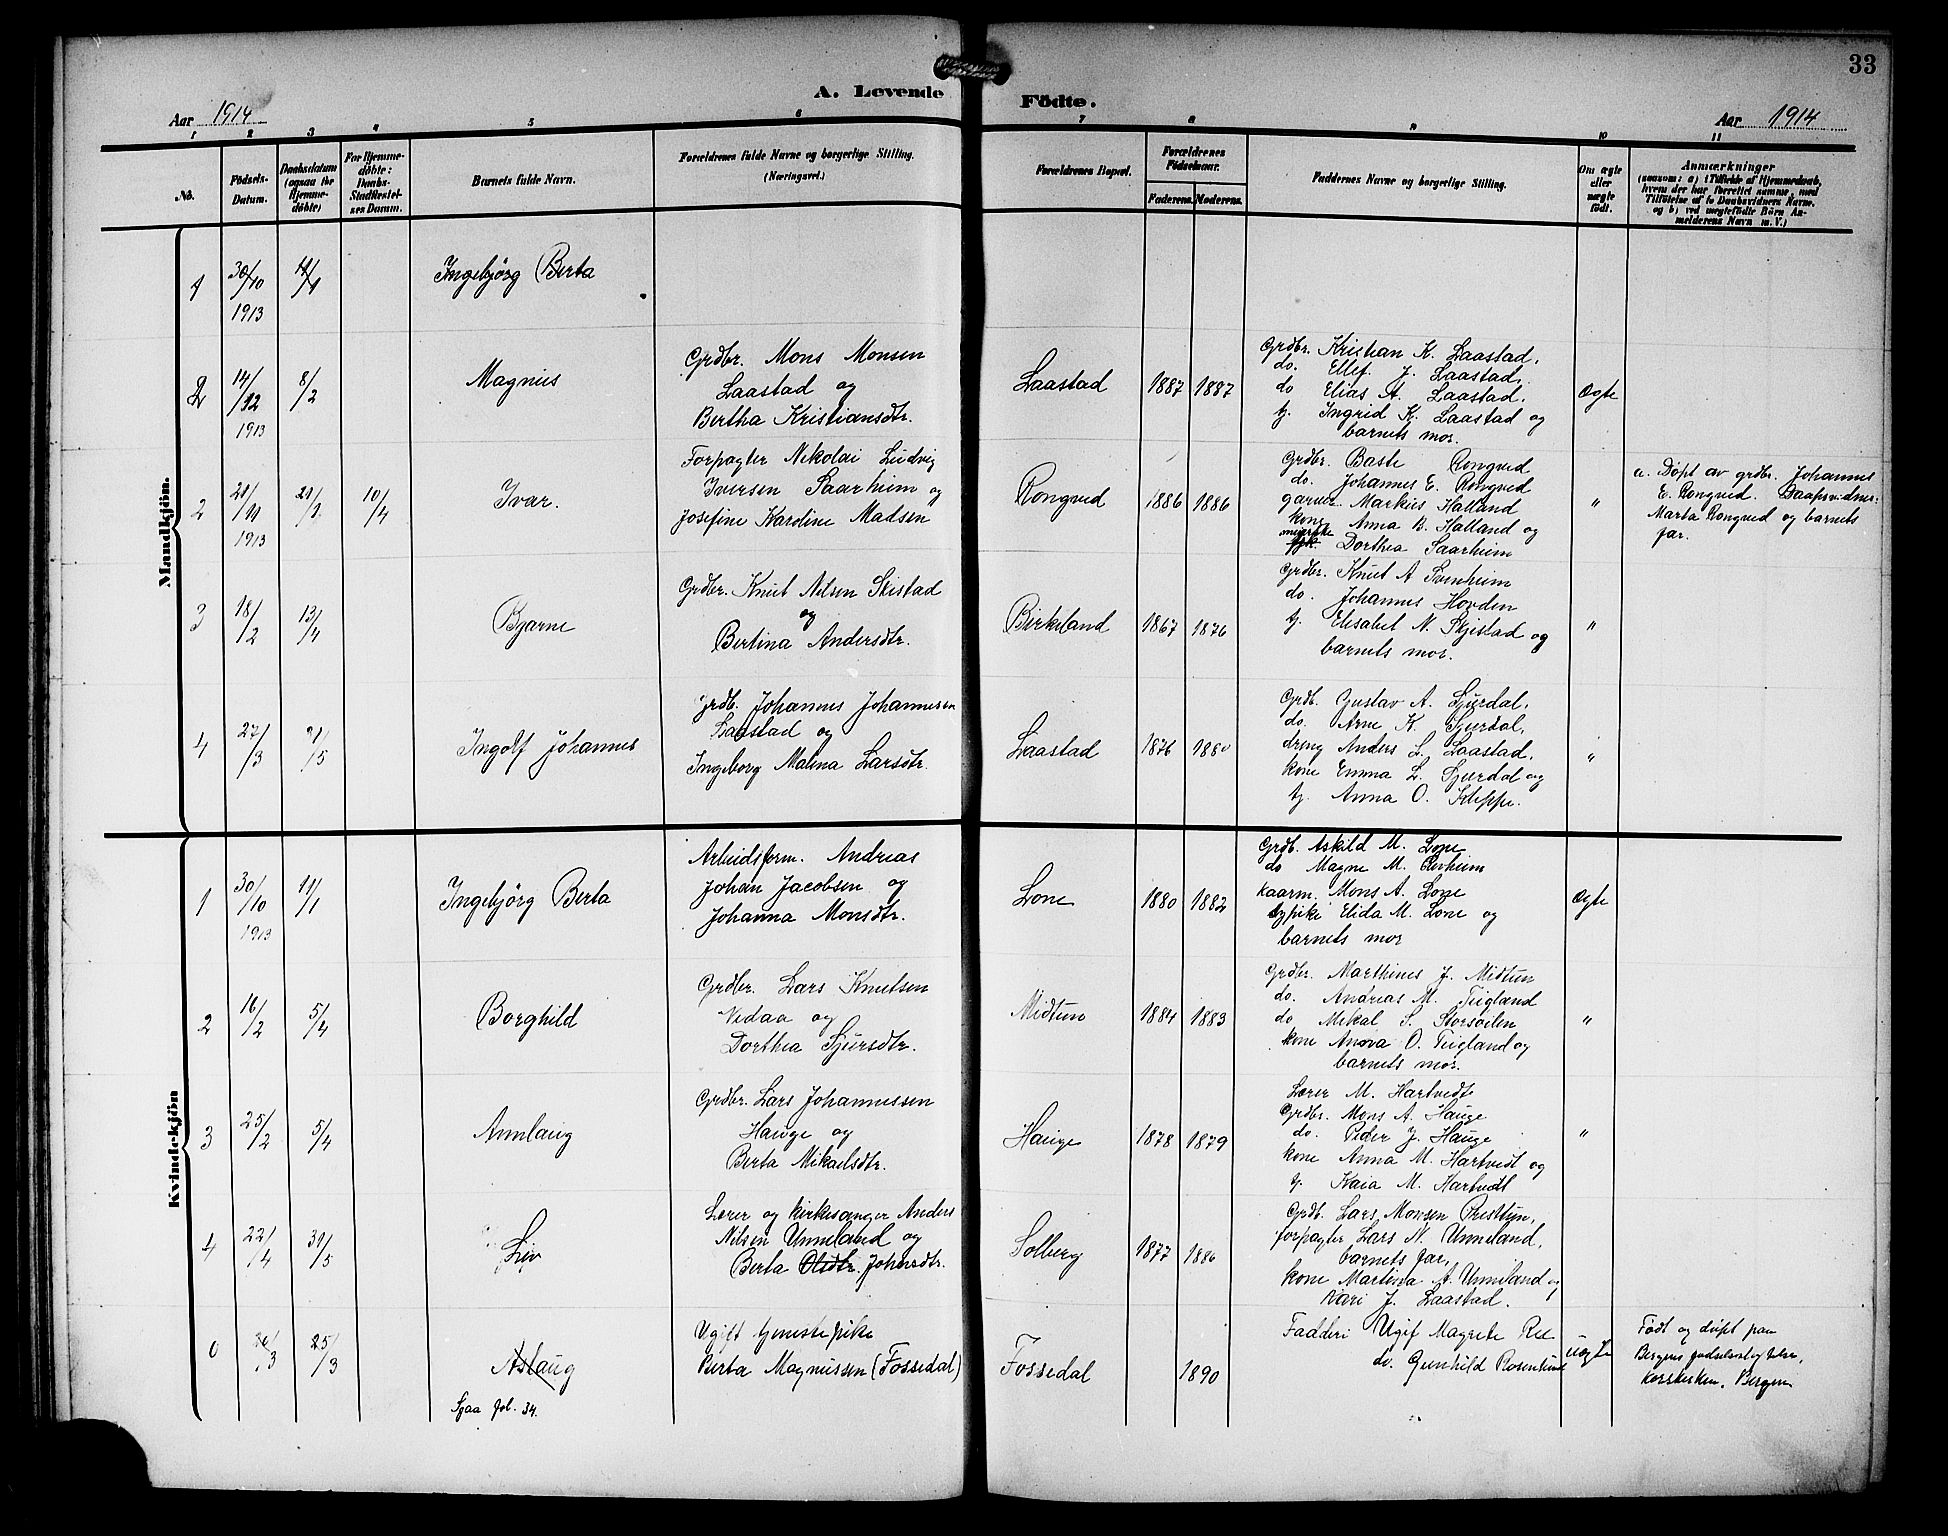 33
A. Levende Födte.
Aar 1914
Aar 1914
1 2 3 4 5 6 7 8 9 10 11
No.
Födsels-Datum.
Daabsdatum (ogsaa for Hjemmedöbte)
For Hjemmedöbte: Daabs-Stadfæstelses Datum.
Barnets fulde Navn.
Forældrenes fulde Navne og borgerlige Stilling. (Næringsvei.)
Forældrenes Bopæl.
Forældrenes Födselsaar.
Faderens. Moderens.
Faddernes Navne og borgerlige Stilling.
Om ægte eller uægte födt.
Anmærkninger
(saasom: a) i Tilfælde af Hjemmedaab,
hvem der har forrettet samme, med
Tilföielse af to Daabsvidners Navne.
og b) ved uægtefödte Börn An-
melderens Navn m. V.)
Mandkjön.
1 30/10 1913 11/1 Ingebjörg Berta
2 14/12 1913 8/2 Magnus
Grdbr. Mons Monsen
Laastad og
Bertha Kristiansdtr.
Laastad 1887 1887
Grdbr. Kristian K. Laastad,
do. Ellef J. Laastad,
do Elias A. Laastad,
tj. Ingrid K. Laastad og
barnets mor.
Ægte
2 21/11 1913 10/4 Ivar.
Forpagter Nikolai Ludvig
Iversen Saarheim og
Josefine Karoline Madsen
Rongved 1886 1886
Grdbr. Baste Rongved
do. Johannes E. Rongved
garver Markus Halland
kone Anna B. Halland og
Dorthea Saarheim
"
a. Döpt av grdbr. Johannes
E. Rongved. Daapsvidner:
Marta Rongved og barnets
far.
3 18/2 13/4 Bjarne
Grdbr. Knut Nilsen Skistad
og
Bertina Andersdtr.
Birkeland 1867 1876
Grdbr. Knut A Svenheim
do. Johannes Hovden
tj. Elisabet N. Skjistad og
barnets mor.
"
4 27/3 21/5 Ingolf Johannes
Grdb. Johannes Johannesen
Laastad og
Ingeborg Malena Larsdtr.
Laastad 1876 1880
Grdb. Gustav A. Sjurdal,
do. Arne K. Sjurdal,
dreng Anders L. Laastad,
kone Emma L. Sjurdal og
tj. Anna O. Kleppe.
"
Kvindekjön
1 30/10 1913 11/1 Ingebjörg Berta
Arbeidsform. Andreas
Johan Jacobsen og
Johanna Monsdtr.
Lone 1880 1882
Grdb. Askild M. Lone
do Magne M.
kaarm. Mons A. Lone
pike Elida M. Lone og
barnets mor
Ægte
2 16/2 5/4 Borghild
Grdbr. Lars Knutsen
Vedaa og
Dorthea Sjursdtr.
Midtun 1884 1883
Grdbr. Marthines J. Midtun
do. Andreas M. Teigland
do Mikal S. Storsöilen
kone O. Teigland og
barnets mor.
"
3 25/2 5/4 Annlaug
Grdbr. Lars Johannessen
Hauge og
Berta Mikaelsdtr.
Hauge 1878 1879
Lærer M. Hartvedt
Grdbr. Mons A. Hauge
do. Peder J. Hauge
kone Anna M. Hartvedt og
tj. Kaia M. Hartvedt
"
4 22/4 31/5 Liv
Lærer og kirkesanger Anders
Nilsen Unneland og
Berta Olsdtr. Johnsdtr.
Solberg 1877 1886
Grdb. Lars Monsen Presttun,
forpagter Lars N. Unneland,
barnets far,
kone Martina A. Unneland og
Kari J. Laastad.
0 25/3 Aslaug
Sjaa fol. 34.
Ugift tjenestepike
Berta Magnussen (Fossedal)
Fossedal 1890
Fadderi Ugif Magrete Ree
do. Gunhild Rosenlund
uægte
Födt og döpt paa
Bergens födselsstiftelse,
Korskirken, Bergen